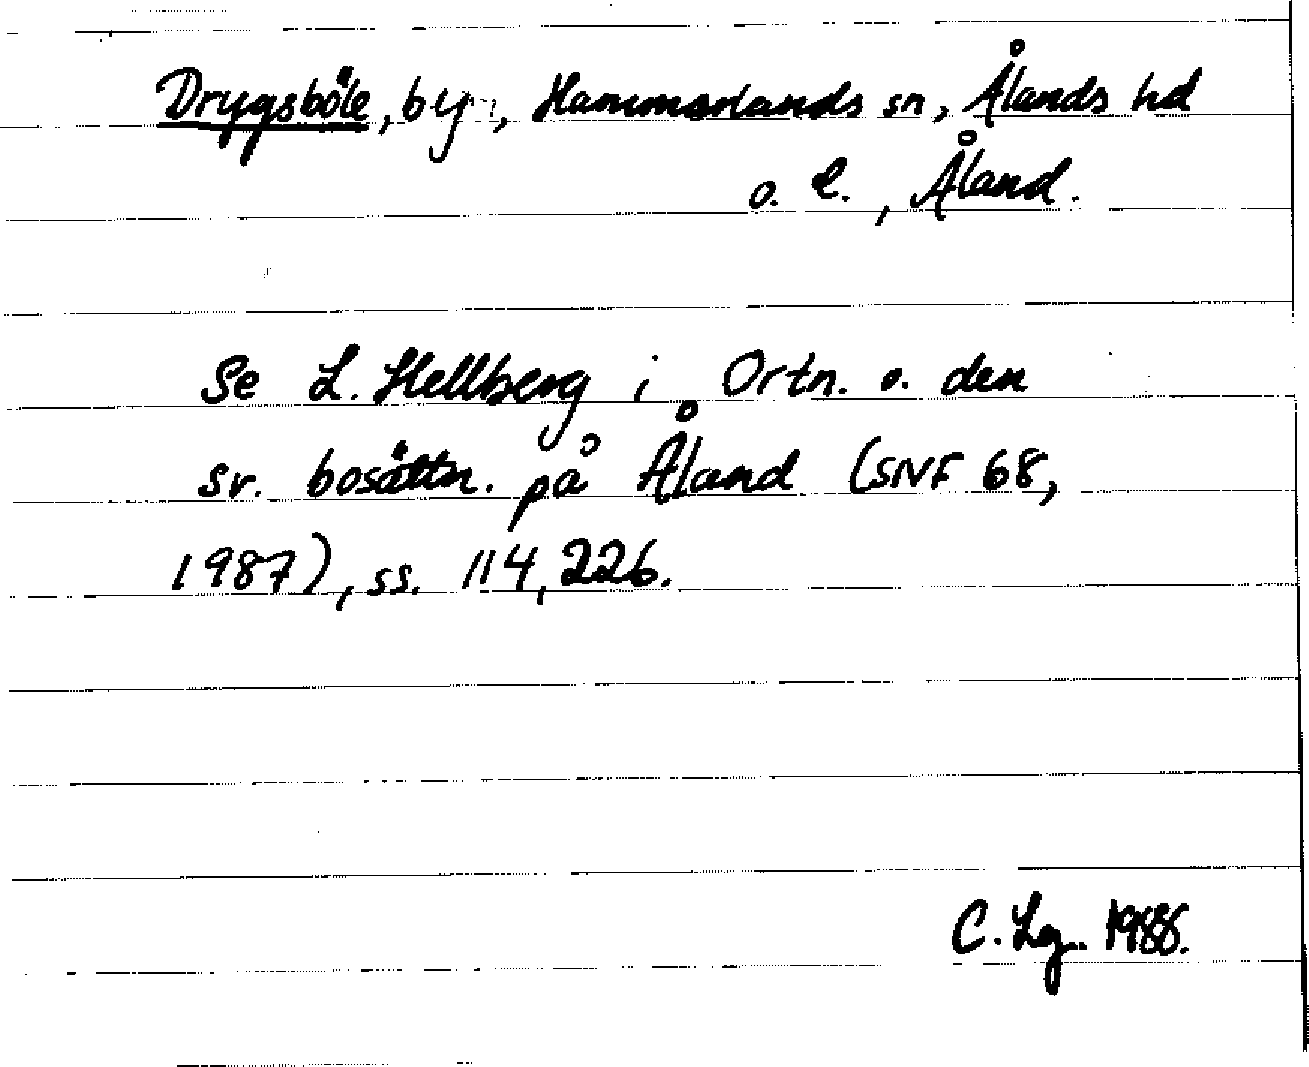 Drygsböle, by, Hammarlands sn, Ålands hd
o. l., Åland.
Se L. Hellberg i Ortn. o. den
sv. bosättn. på Åland (SNF 68,
1987), ss. 114, 226.
C. Lg. 1988.